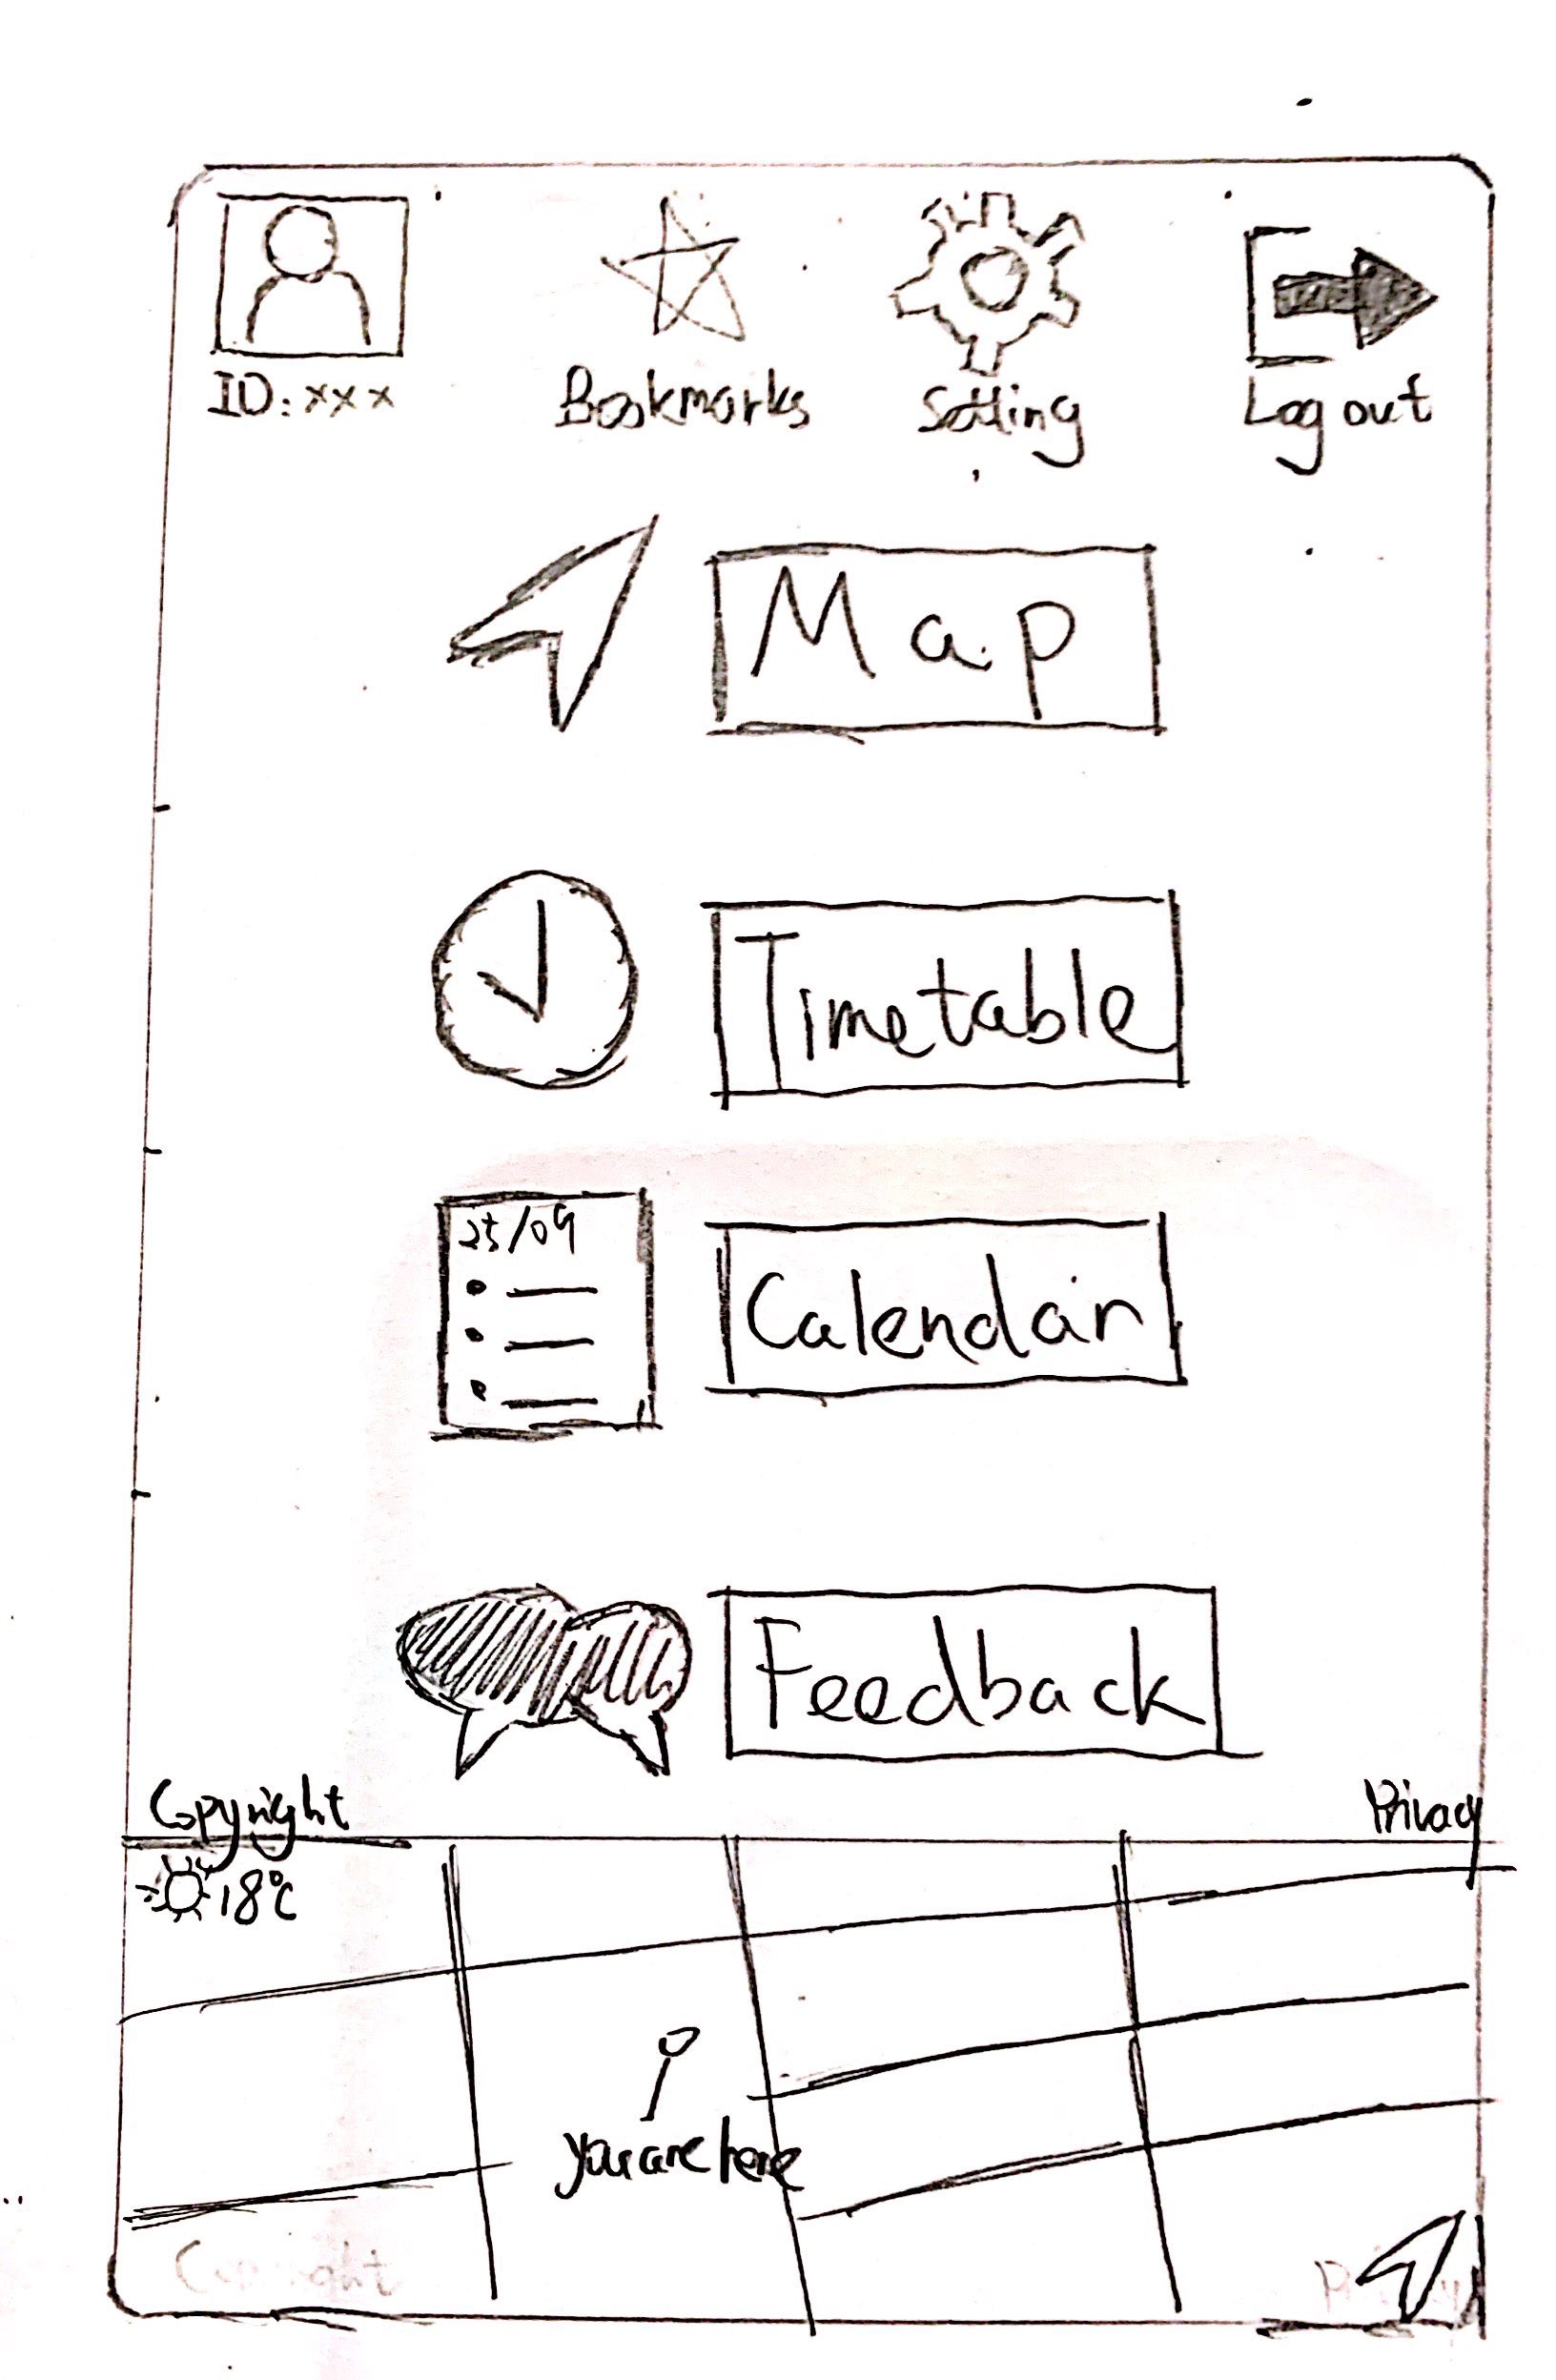 ID: xxx Bookmarks Setting Log out
Map
Timetable
25/09
Calendar
Feedback
Copyright Privacy
18°C
you are here
Copyright